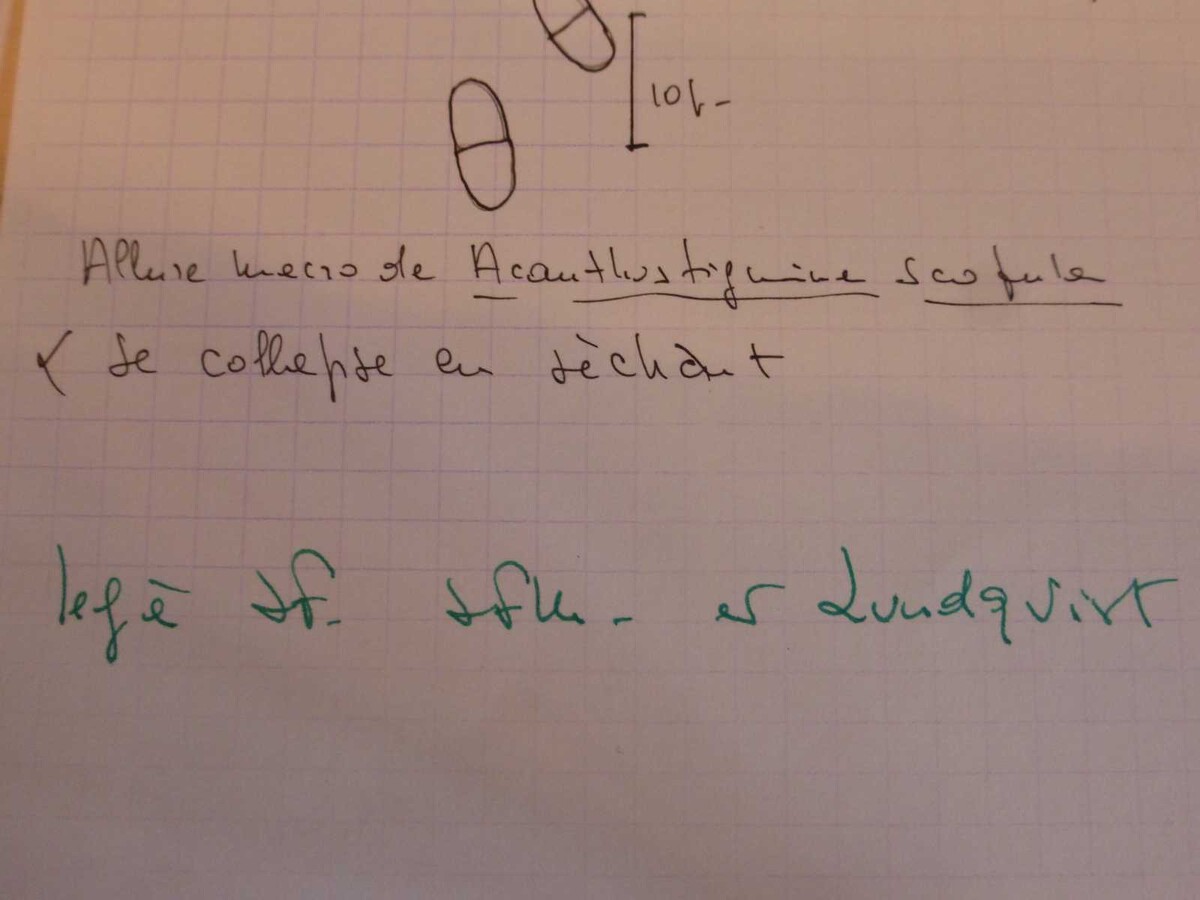 10µ
Allure macro de Acanthostigmina scopula
se collapse en sèchant
et Lundqvist